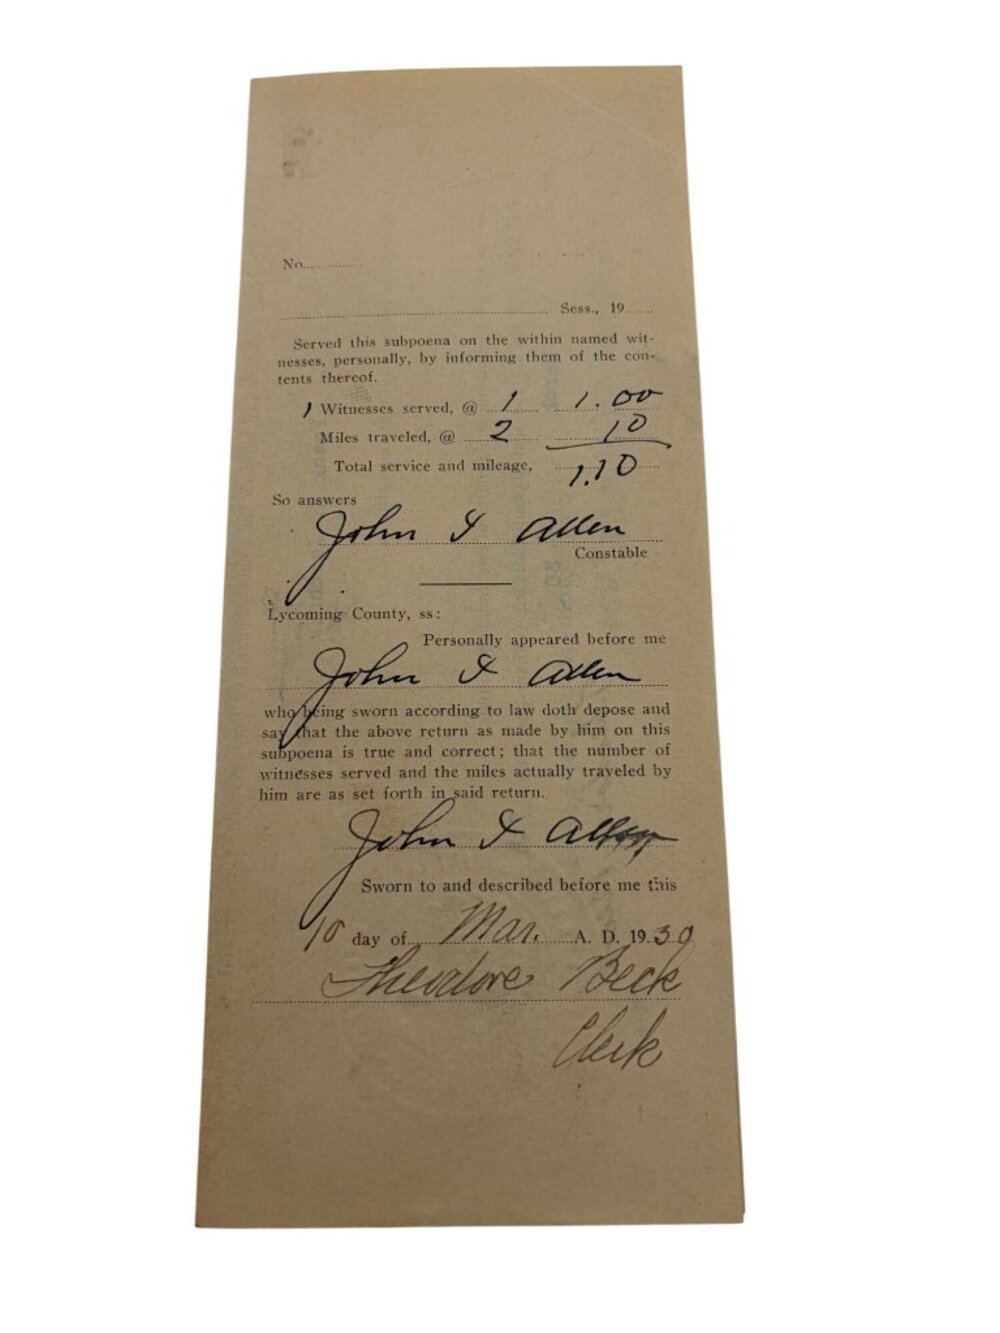 No.
Sess., 19
Served this subpoena on the within named wit-
nesses, personally, by informing them of the con-
tents thereof.
1 Witnesses served, @ 1 1.00
Miles traveled, @ 2 10
Total service and mileage, 1.10
So answers
John I Allen
Constable
Lycoming County, ss:
Personally appeared before me
John I Allen
who being sworn according to law doth depose and
say that the above return as made by him on this
subpoena is true and correct; that the number of
witnesses served and the miles actually traveled by
him are as set forth in said return.
John I Allen
Sworn to and described before me this
10 day of Mar. A. D. 1930
Theodore Beck
Clerk